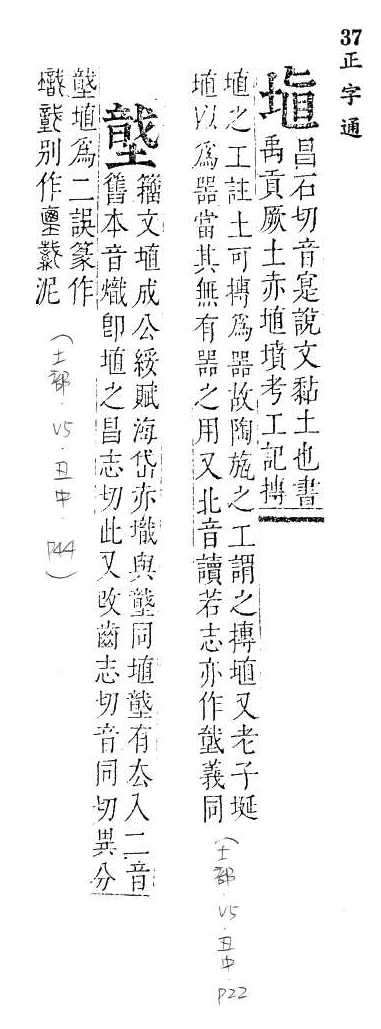 37 正字通
埴
昌石切音寔說文黏土也書
禹貢厥土赤埴墳考工記摶
埴之工註土可摶爲器故陶旊之工謂之摶埴又老子埏
埴以爲器當其無有器之用又北音讀若志亦作 義同
(土部.V5.丑中.P22)
籀文埴成公綏賦海岱亦 與 同埴 有去入二音
舊本音熾卽埴之昌志切此又改齒志切音同切異分
埴爲二誤篆作
別作 泥
(土部.V5.丑中.P44)